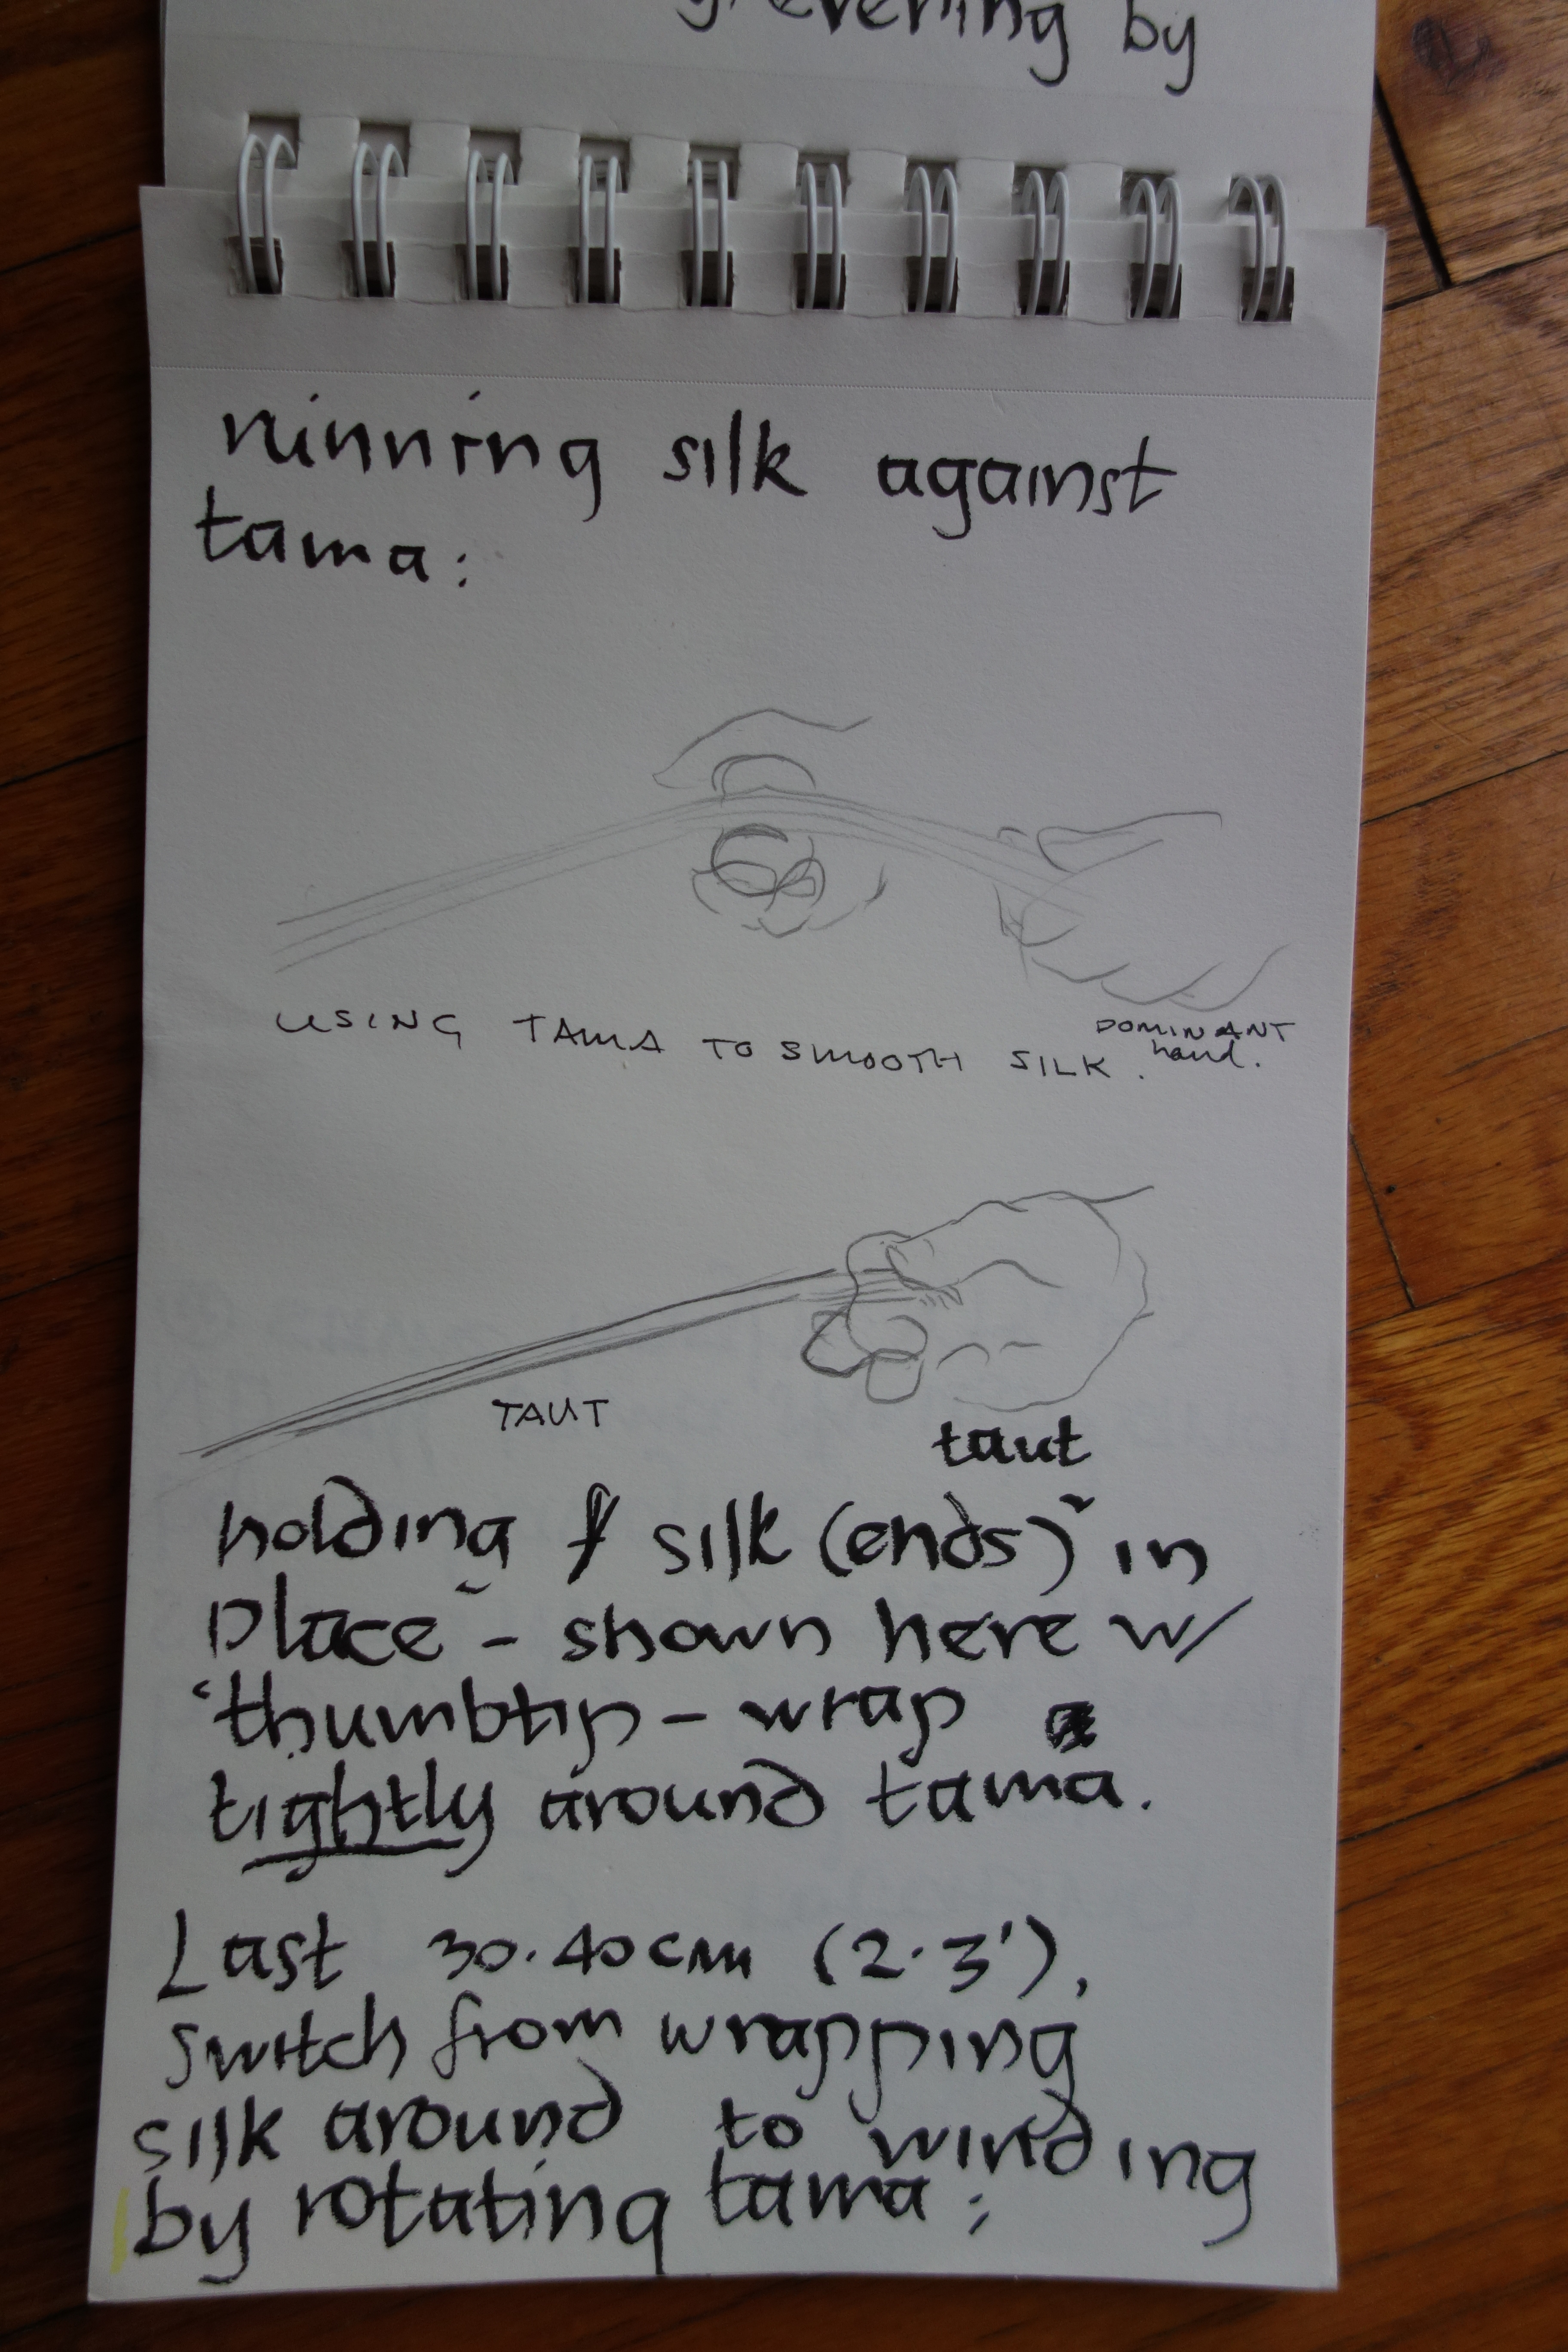 evening by
running silk against
tama:
USING TAMA TO SMOOTH SILK.
DOMINANT
hand.
TAUT
taut
holding silk (ends) in
place - shown here w/
thumbtip - wrap
tightly around tama.
Last 30-40cm (2-3'),
switch from wrapping
silk around to winding
by rotating tama;